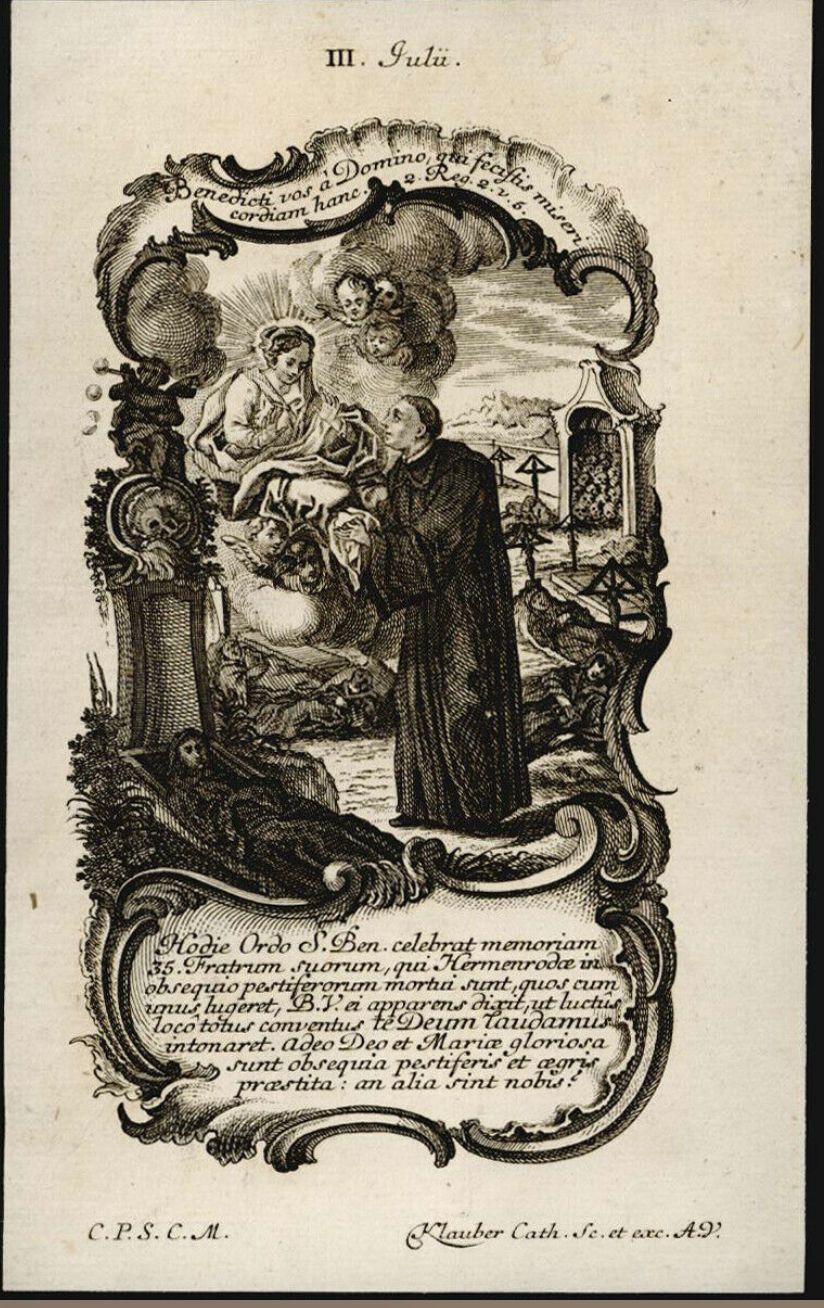 III. Julii.
Benedicti vos à Domino, qui fecistis miseri-
cordiam hanc. 2. Reg. 2. v. 5.
Hodie Ordo S. Ben. celebrat memoriam
35. Fratrum suorum, qui Hermenrodæ in
obsequio pestiferorum mortui sunt, quos cum
unus lugeret, B.V. ei apparens dixit, ut luctus
loco totus conventus te Deum laudamus
intonaret. adeo Deo et Mariæ gloriosa
sunt obsequia pestiferis et ægris
præstita: an alia sint nobis?
C. P. S. C. M.
Klauber Cath. Sc. et exc. A.V.